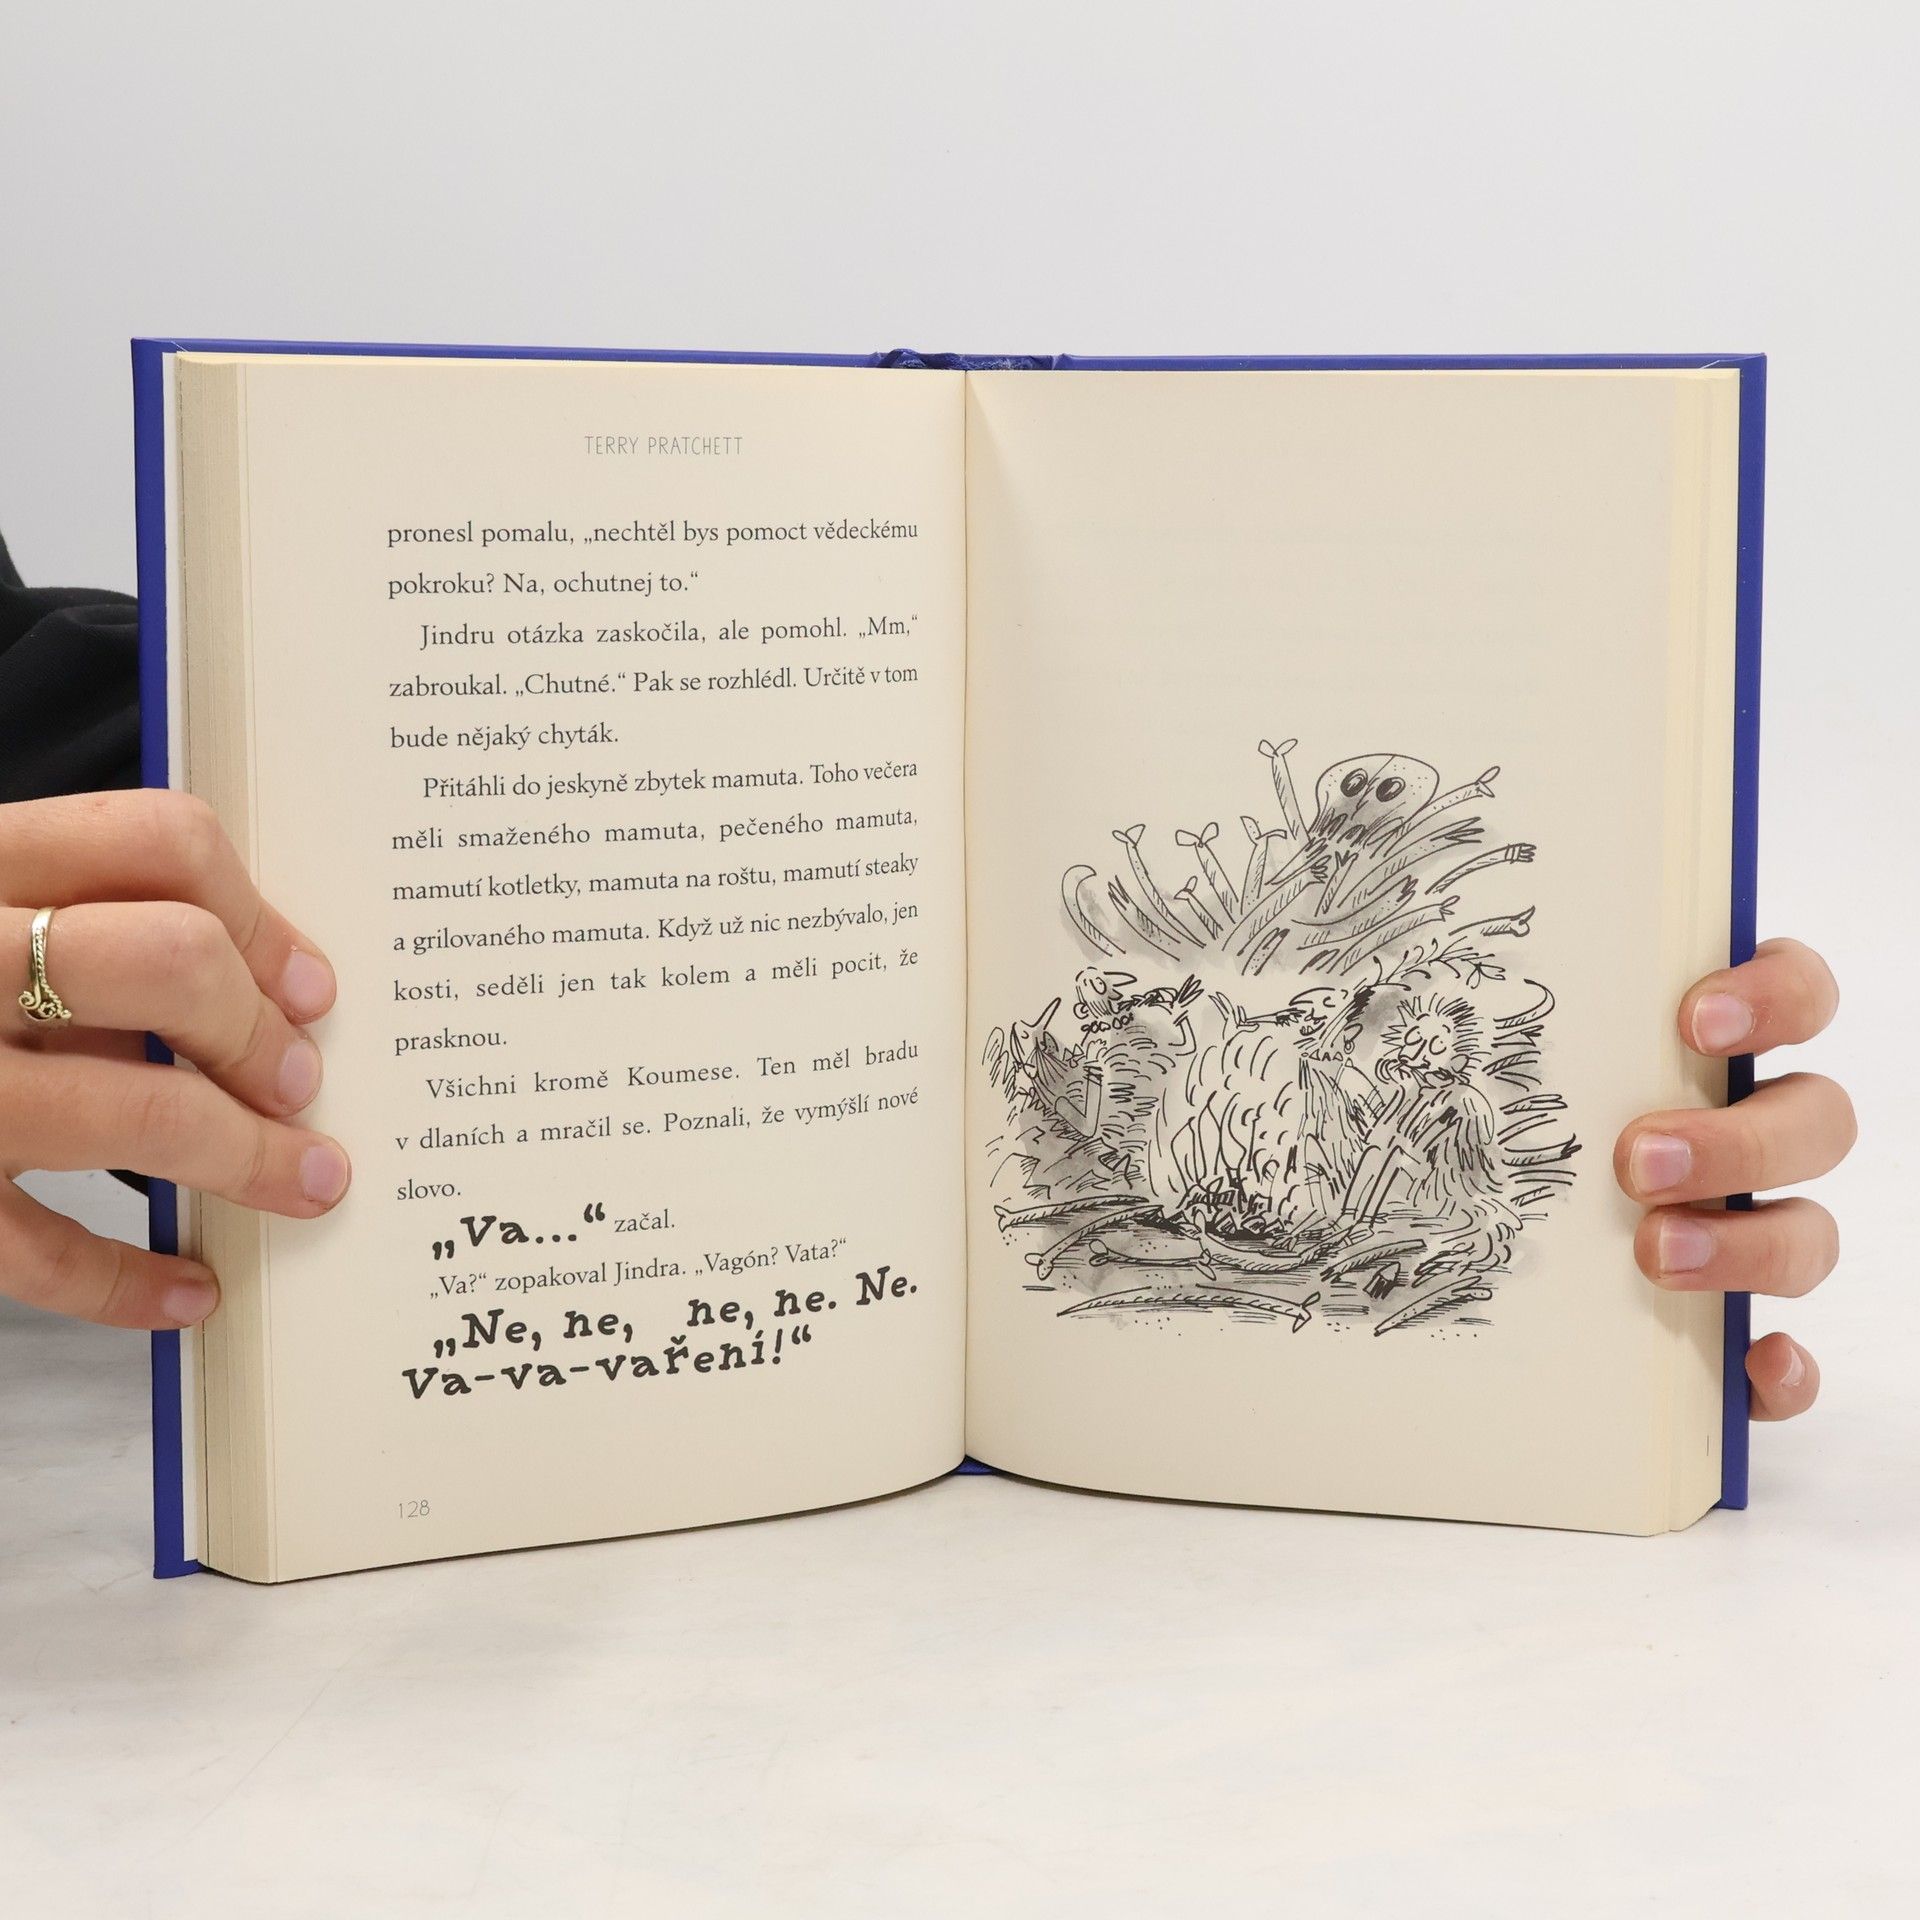 TERRY PRATCHETT
pronesl pomalu, „nechtěl bys pomoct vědeckému
pokroku? Na, ochutnej to.“
Jindru otázka zaskočila, ale pomohl. „Mm,“
zabroukal. „Chutné.“ Pak se rozhlédl. Určitě v tom
bude nějaký chyták.
Přitáhli do jeskyně zbytek mamuta. Toho večera
měli smaženého mamuta, pečeného mamuta,
mamutí kotletky, mamuta na roštu, mamutí steaky
a grilovaného mamuta. Když už nic nezbývalo, jen
kosti, seděli jen tak kolem a měli pocit, že
prasknou.
Všichni kromě Koumese. Ten měl bradu
v dlaních a mračil se. Poznali, že vymýšlí nové
slovo.
„Va...“ začal.
„Va?“ zopakoval Jindra. „Vagón? Vata?“
„Ne, ne, ne, ne. Ne.
Va-va-vaření!“
128